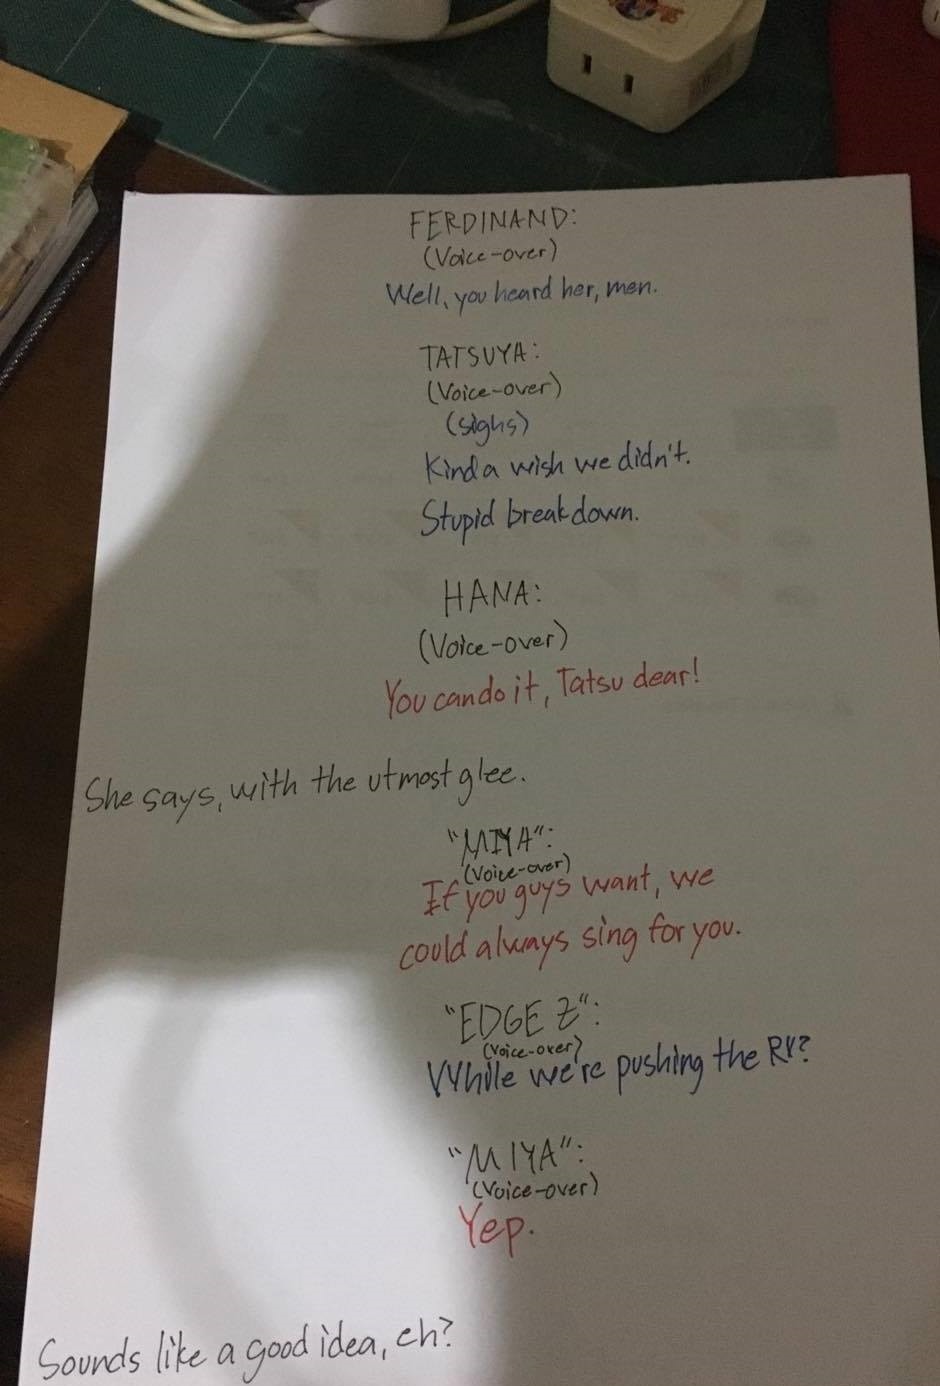 FERDINAND:
(Voice-over)
Well, you heard her, men.
TATSUYA:
(Voice-over)
(sighs)
Kinda wish we didn't.
Stupid breakdown.
HANA:
(Voice-over)
You can do it, Tatsu dear!
She says, with the utmost glee.
"MIYA":
(Voice-over)
If you guys want, we
could always sing for you.
"EDGE Z":
(Voice-over)
While we're pushing the RV?
"MIYA":
(Voice-over)
Yep.
Sounds like a good idea, eh?